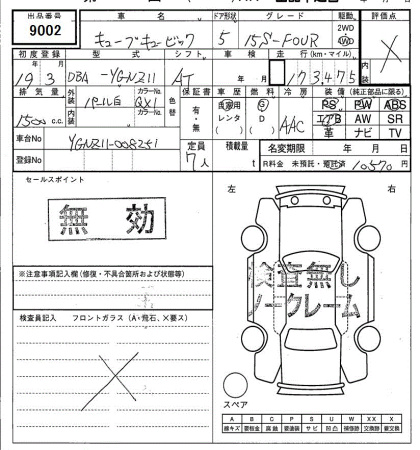 出品番号
9002
車名
キューブキュービック
ドア形状
5
グレード
15S-FOUR
駆動
2WD
4WD
評価点
初度登録
19年3月
型式
DBA-YGNZ11
シフト
AT
車検
年 月
走行(km・マイル)
173,475
排気量
1500 c.c.
外装
パール白
カラーNo.
QX1
内装
カラーNo.
色替
保証書
有・無
車歴
自家用
レンタ
燃料
G
D
冷房
AAC
装備(純正部品に限る)
PS PW ABS
エアB AW SR
革 ナビ TV
車台No
YGNZ11-008251
登録No
定員
7人
積載量
t
名変期限 年 月 日
R料金 未預託・預託済 10570 円
セールスポイント
無効
※注意事項記入欄(修復・不具合箇所および状態等)
検査員記入 フロントガラス(A・飛石、×要ス)
左 右
検査無し
ノークレーム
スペア
A B C P S U W X XX
線キズ 要板金 腐蝕 要塗装 サビ 凹凸 補修跡 要交換 要交換